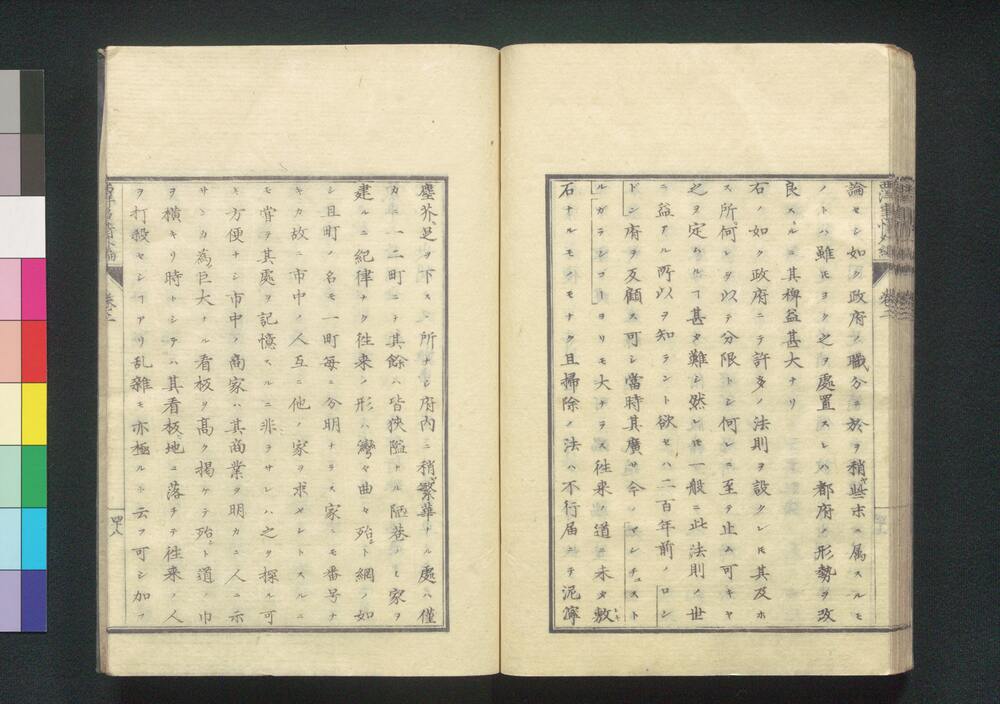 西洋事情外編 巻之二
論セシ如ク政府ノ職分ニ於ヲ稍些末ニ属スルモ
ノトハ雖𪜈ヨク之ヲ處置スレハ都府ノ形勢ヲ改
良スルニ其裨益甚大ナリ
右ノ如ク政府ニテ許多ノ法則ヲ設クレ𪜈其及ホ
ス所何レヲ以テ分限トシ何レニ至テ止ム可キヤ
之ヲ定ムルヿ甚タ難シ然レ𪜈一般ニ此法則ノ世
ニ益アル所以ヲ知ラント欲セハ二百年前ノロン
ドン府ヲ反顧ス可シ當時其廣サ今ノマンチェスト
ルガラシゴーヨリモ大ナラス往来ノ道ニ未タ敷
石ナルモノモナク且掃除ノ法ハ不行届ニテ泥濘
塵芥足ヲ下スニ所ナシ府内ニ稍繁華ナル處ハ僅
カニ一二町ニテ其餘ハ皆狭隘ナル陋巷ノミ家ヲ
建ルニ紀律ナク往来ノ形ハ灣々曲々殆ト網ノ如
シ且町ノ名モ一町毎ニ分明ナラス家ニモ番号ナ
キカ故ニ市中ノ人互ニ他ノ家ヲ求メントスルニ
モ嘗ヲ其處ヲ記憶スルニ非ヲサレハ之ヲ探ル可
キ方便ナシ市中ノ商家ハ其商業ヲ明カニ人ニ示
サンカ為巨大ナル看板ヲ高ク掲ケテ殆ト道ノ巾
ヲ横キリ時トシテハ其看板地ニ落チテ往来ノ人
ヲ打殺セシヿアリ乱雜モ亦極ルト云フ可シ加フ
巻之二
四十八